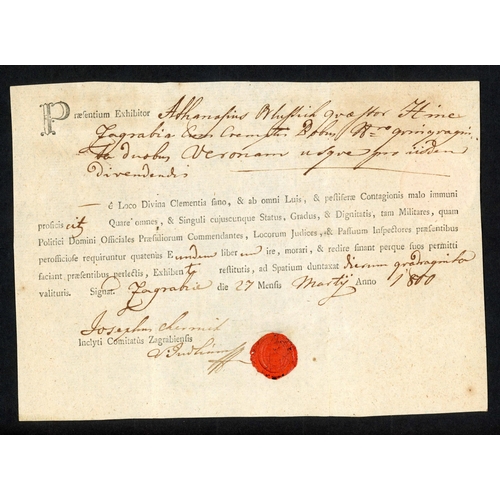 Præsentium Exhibitor Athanasius quæstor Hinc
Zagrabia
duobus Veronam usque pro iisdem
divendendis
é Loco Divina Clementia sano, & ab omni Luis, & pestiferæ Contagionis malo immuni
proficiscit Quare omnes, & Singuli cujuscunque Status, Gradus, & Dignitatis, tam Militares, quam
Politici Domini Officiales Præsidiorum Commendantes, Locorum Judices, & Passuum Inspectores præsentibus
perofficiose requiruntur quatenus Eundem liber ire, morari, & redire sinant perque suos permitti
faciant, præsentibus perlectis, Exhibenti restitutis, ad Spatium duntaxat dierum quadraginta
valituris. Signat. Zagrabiæ die 27 Mensis Martij Anno 1800
Josephus
Inclyti Comitatûs Zagrabiensis